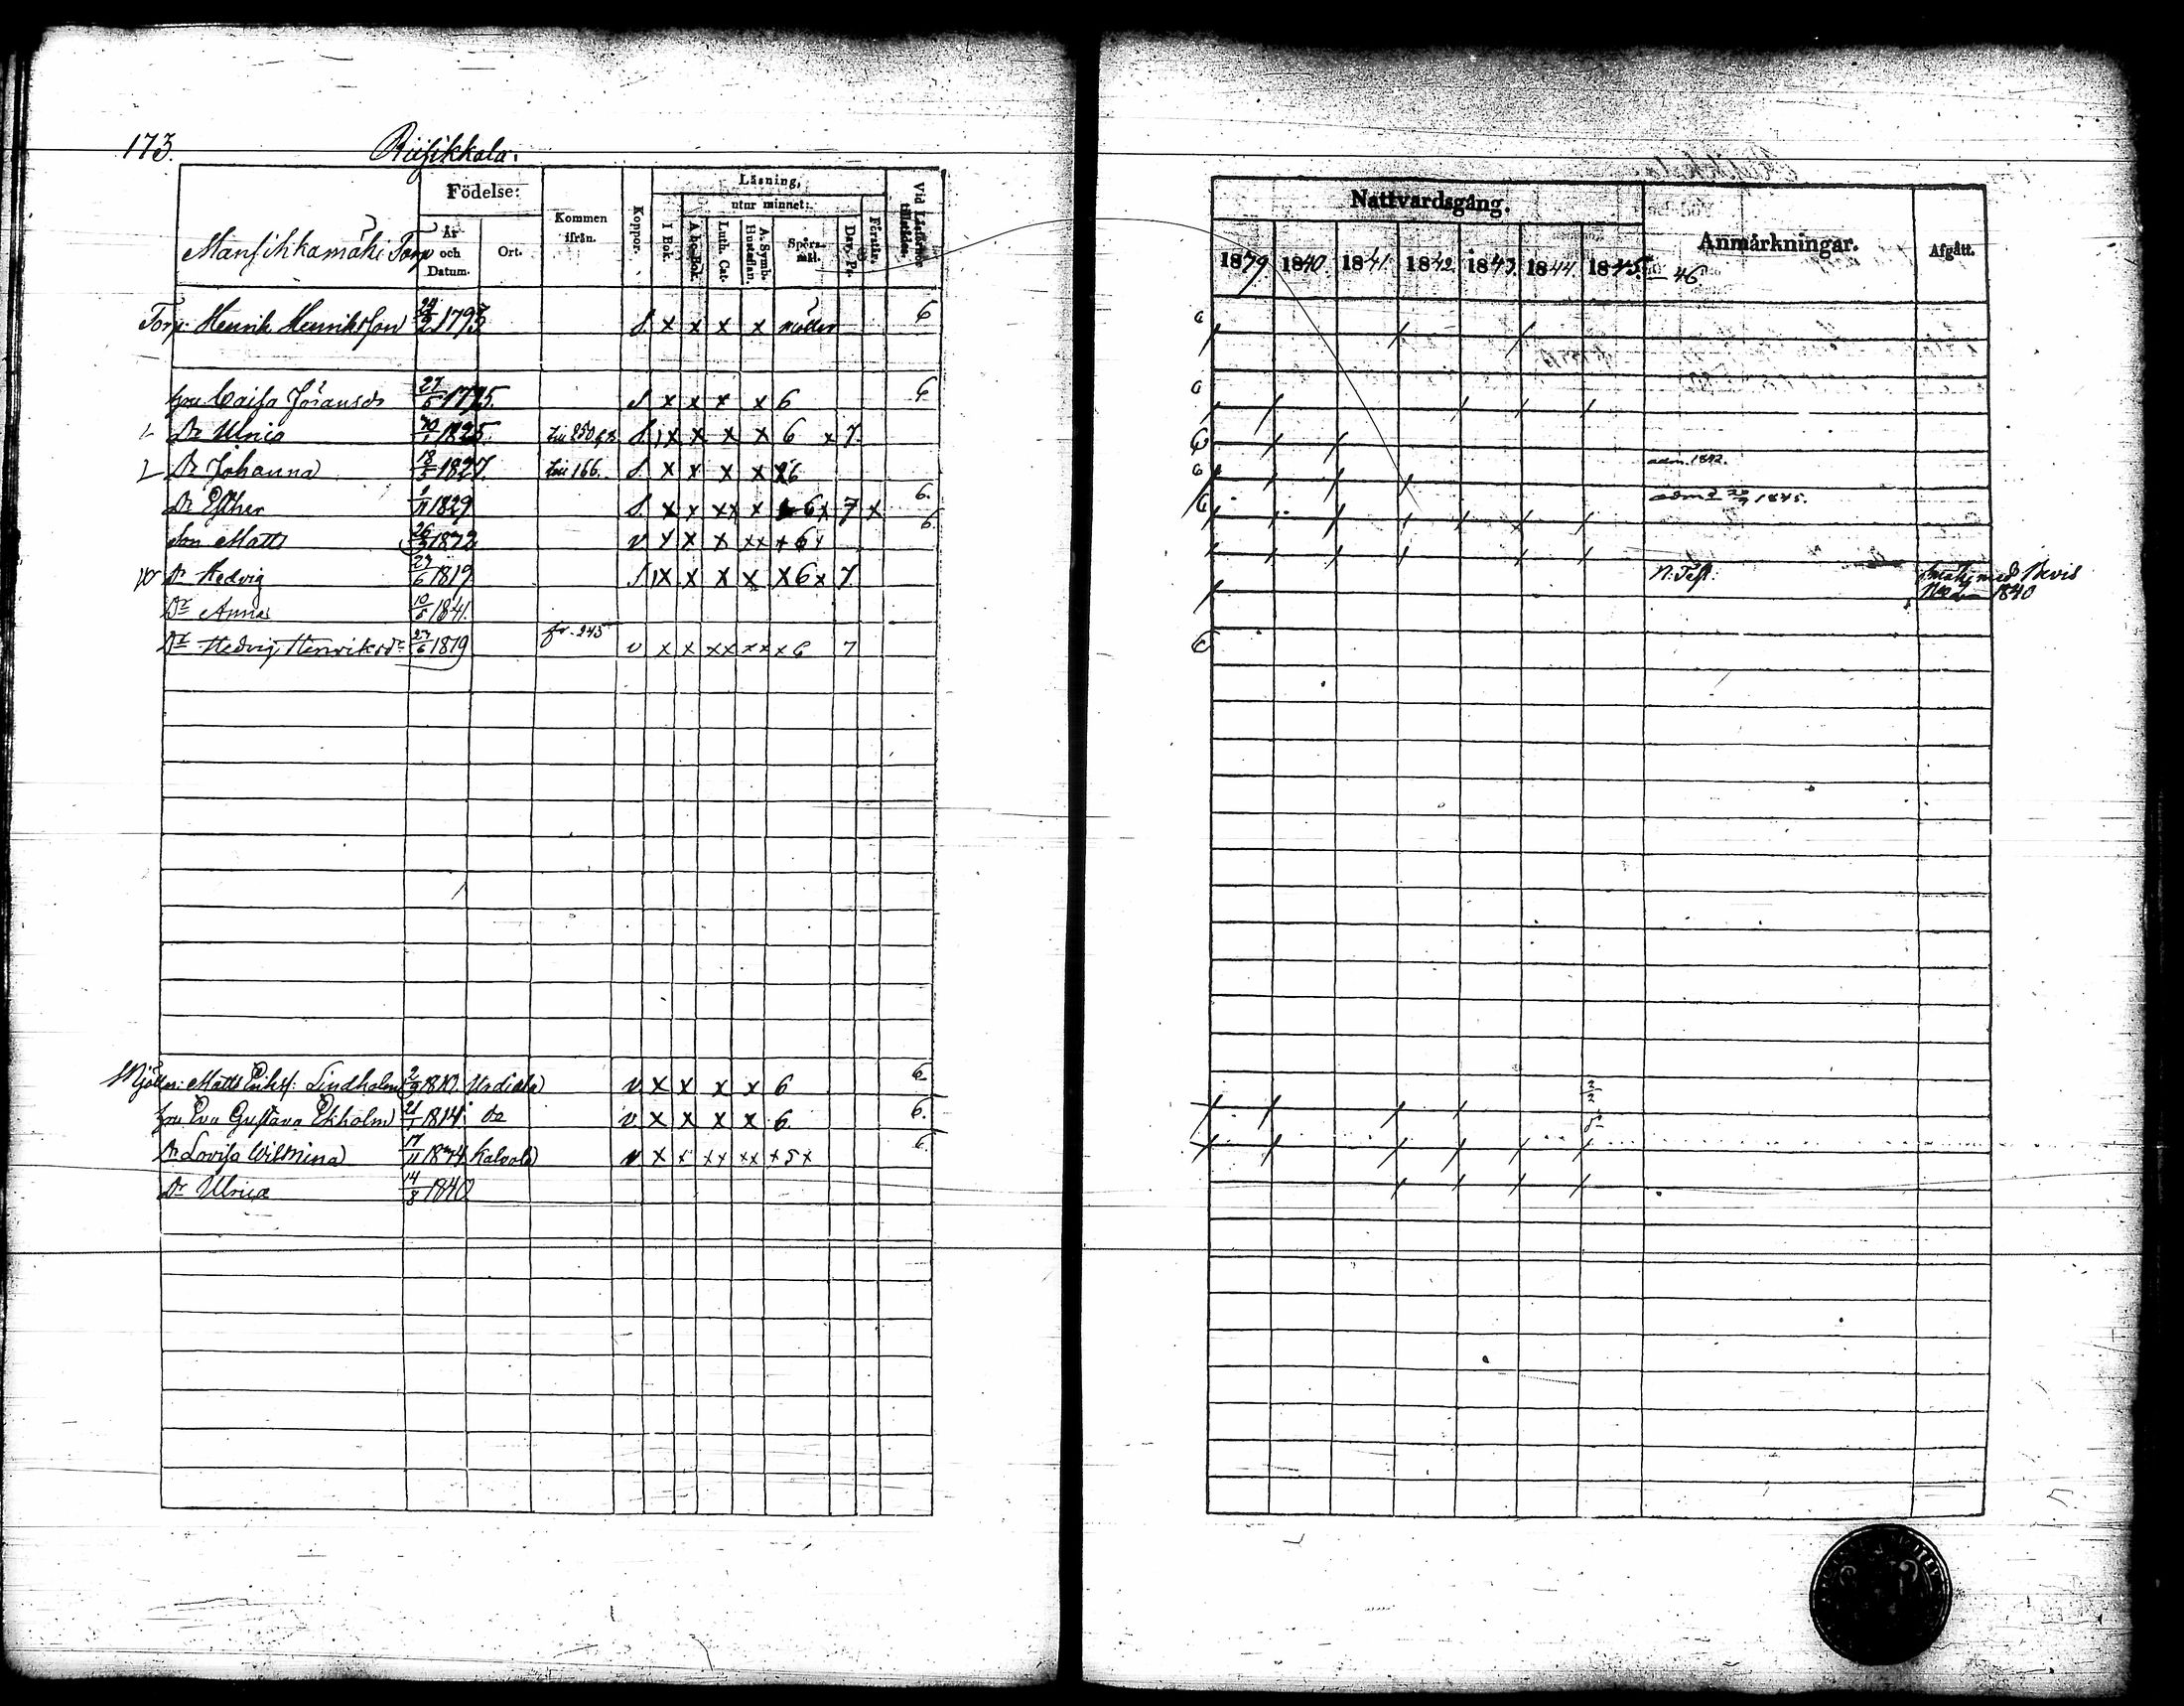 173.
Riisikkala.
Mansikkamäki Torp
Födelse:
År och Datum.
Ort.
Kommen ifrån.
Koppor.
Läsning,
I Bok.
utur minnet:
A b c Bok.
Luth. Cat.
A. Symb. Hustaflan.
Spörsmål.
Dav. Ps.
Förstår.
Vid Läsförhör tillstädes.
Torp. Henrik Henriksson 24/2 1793 s x x x x 6
hru Caisa Jöransdr 27/5 1775. s x x x x 6 6
Dr Ulrica 1825. s x x x x 6 x 7.
Dr Johanna 18/3 1827. 166. s x x x x 6
Dr Esther 1829 s x x xx x 6 x 7 x 6.
Son Matts 26/3 1832 v x x x xx x 6 x 6
Dr Hedvig 27/6 1819 s x x x x x 6 x 7.
Dr Anna 10/5 1841.
Dr Hedvig Henriksdr 27/6 1819 fr. 245 v x x xx xx x 6 7
Mjöln: Matts Eriks: Lindholm 2/9 1810 Urdiala v x x x x 6 6
hru Eva Gustava Ekholm 21/1 1814 do v x x x x 6. 6.
Dr Lovisa Wilhmina 17/11 1834 Kalvola v x x xx xx x 5 x 6
Dr Ulrica 14/8 1840
Nattvardsgång.
1839. 1840. 1841. 1842. 1843. 1844. 1845. 46.
Anmärkningar.
Afgått.
adm. 1842.
1845.
N: Test:
med Bevis
1840
2/2
5